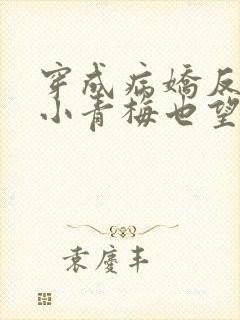 穿成病嬌反
小青梅也望
袁慶丰